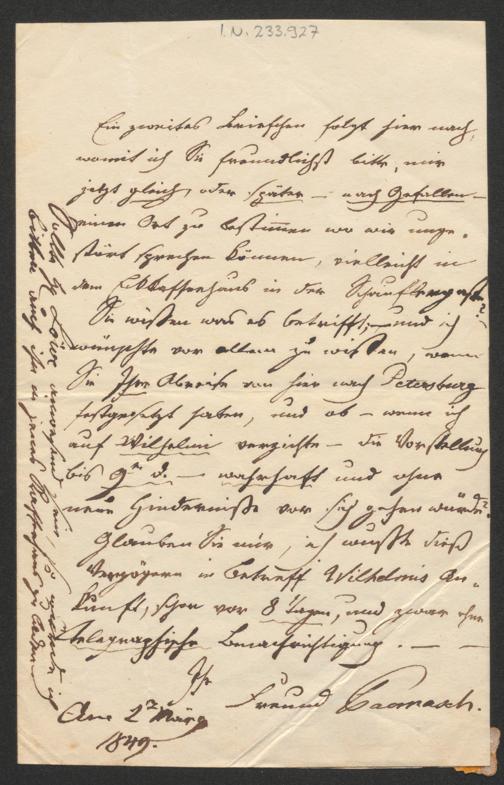 I.N. 233.927
Ein zweites Briefchen folgt hier nach,
womit ich Sie freundlichst bitte, mir
jetzt gleich, oder später – nach Gefallen –
einen Ort zu bestimmen wo wir unge-
stört sprechen können, vielleicht in
dem Kaffeehaus in der Schauflergasse?
Sie wissen was es betrifft, – und ich
wünschte vor allem zu wissen, wann
Sie Ihre Abreise von hier nach Petersburg
festgesetzt haben, und ob – wenn ich
auf Wilhelmi verzichte – die Vorstellung
bis 9ten d. – wahrhaft und ohne
neue Hindernisse vor sich gehen würde?
Glauben Sie mir, ich wußte dieß
Verzögern in Betreff Wilhelmis An-
kunft, schon vor 8 Tagen, und zwar ohne
telegraphische Benachrichtigung. – –
Ihr
Freund
Am 2ten März
1849.
Sollte H. Löwe anwesend sein, so
bitten auch ihn in jenes Kaffeehaus zu laden